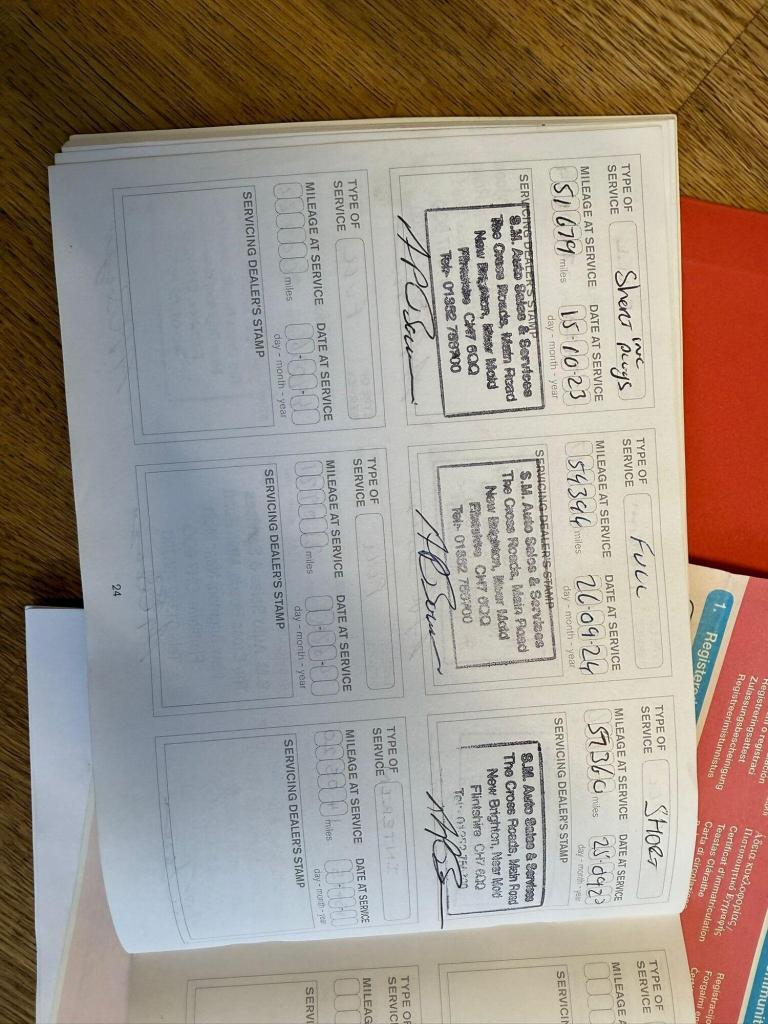 TYPE OF
SERVICE
Short inc
plugs
MILEAGE AT SERVICE
51679 miles
DATE AT SERVICE
15·10·23
day - month - year
SERVICING DEALER'S STAMP
S.M. Auto Sales & Services
The Cross Roads, Main Road
New Brighton, Near Mold
Flintshire CH7 6QQ
TYPE OF
SERVICE
FULL
MILEAGE AT SERVICE
54394 miles
DATE AT SERVICE
26·09·24
day - month - year
SERVICING DEALER'S STAMP
S.M. Auto Sales & Services
The Cross Roads, Main Road
New Brighton, Near Mold
Flintshire CH7 6QQ
TYPE OF
SERVICE
SHORT
MILEAGE AT SERVICE
miles
DATE AT SERVICE
day - month - year
SERVICING DEALER'S STAMP
S.M. Auto Sales & Services
The Cross Roads, Main Road
New Brighton, Near Mold
Flintshire CH7 6QQ
TYPE OF
SERVICE
MILEAGE AT SERVICE
miles
DATE AT SERVICE
day - month - year
SERVICING DEALER'S STAMP
TYPE OF
SERVICE
MILEAGE AT SERVICE
miles
DATE AT SERVICE
day - month - year
SERVICING DEALER'S STAMP
TYPE OF
SERVICE
MILEAGE AT SERVICE
miles
DATE AT SERVICE
day - month - year
SERVICING DEALER'S STAMP
24
TYPE OF
SERVICE
MILEAGE A
SERVI
TYPE OF
SERVICE
MILEAGE
SERVI
1. Registere
Registreringsattest
Zulassungsbescheinigung
Registreerimistunnistus
Άδεια κυκλοφορίας/
Certificat d'immatriculation
Teastas Cláraithe